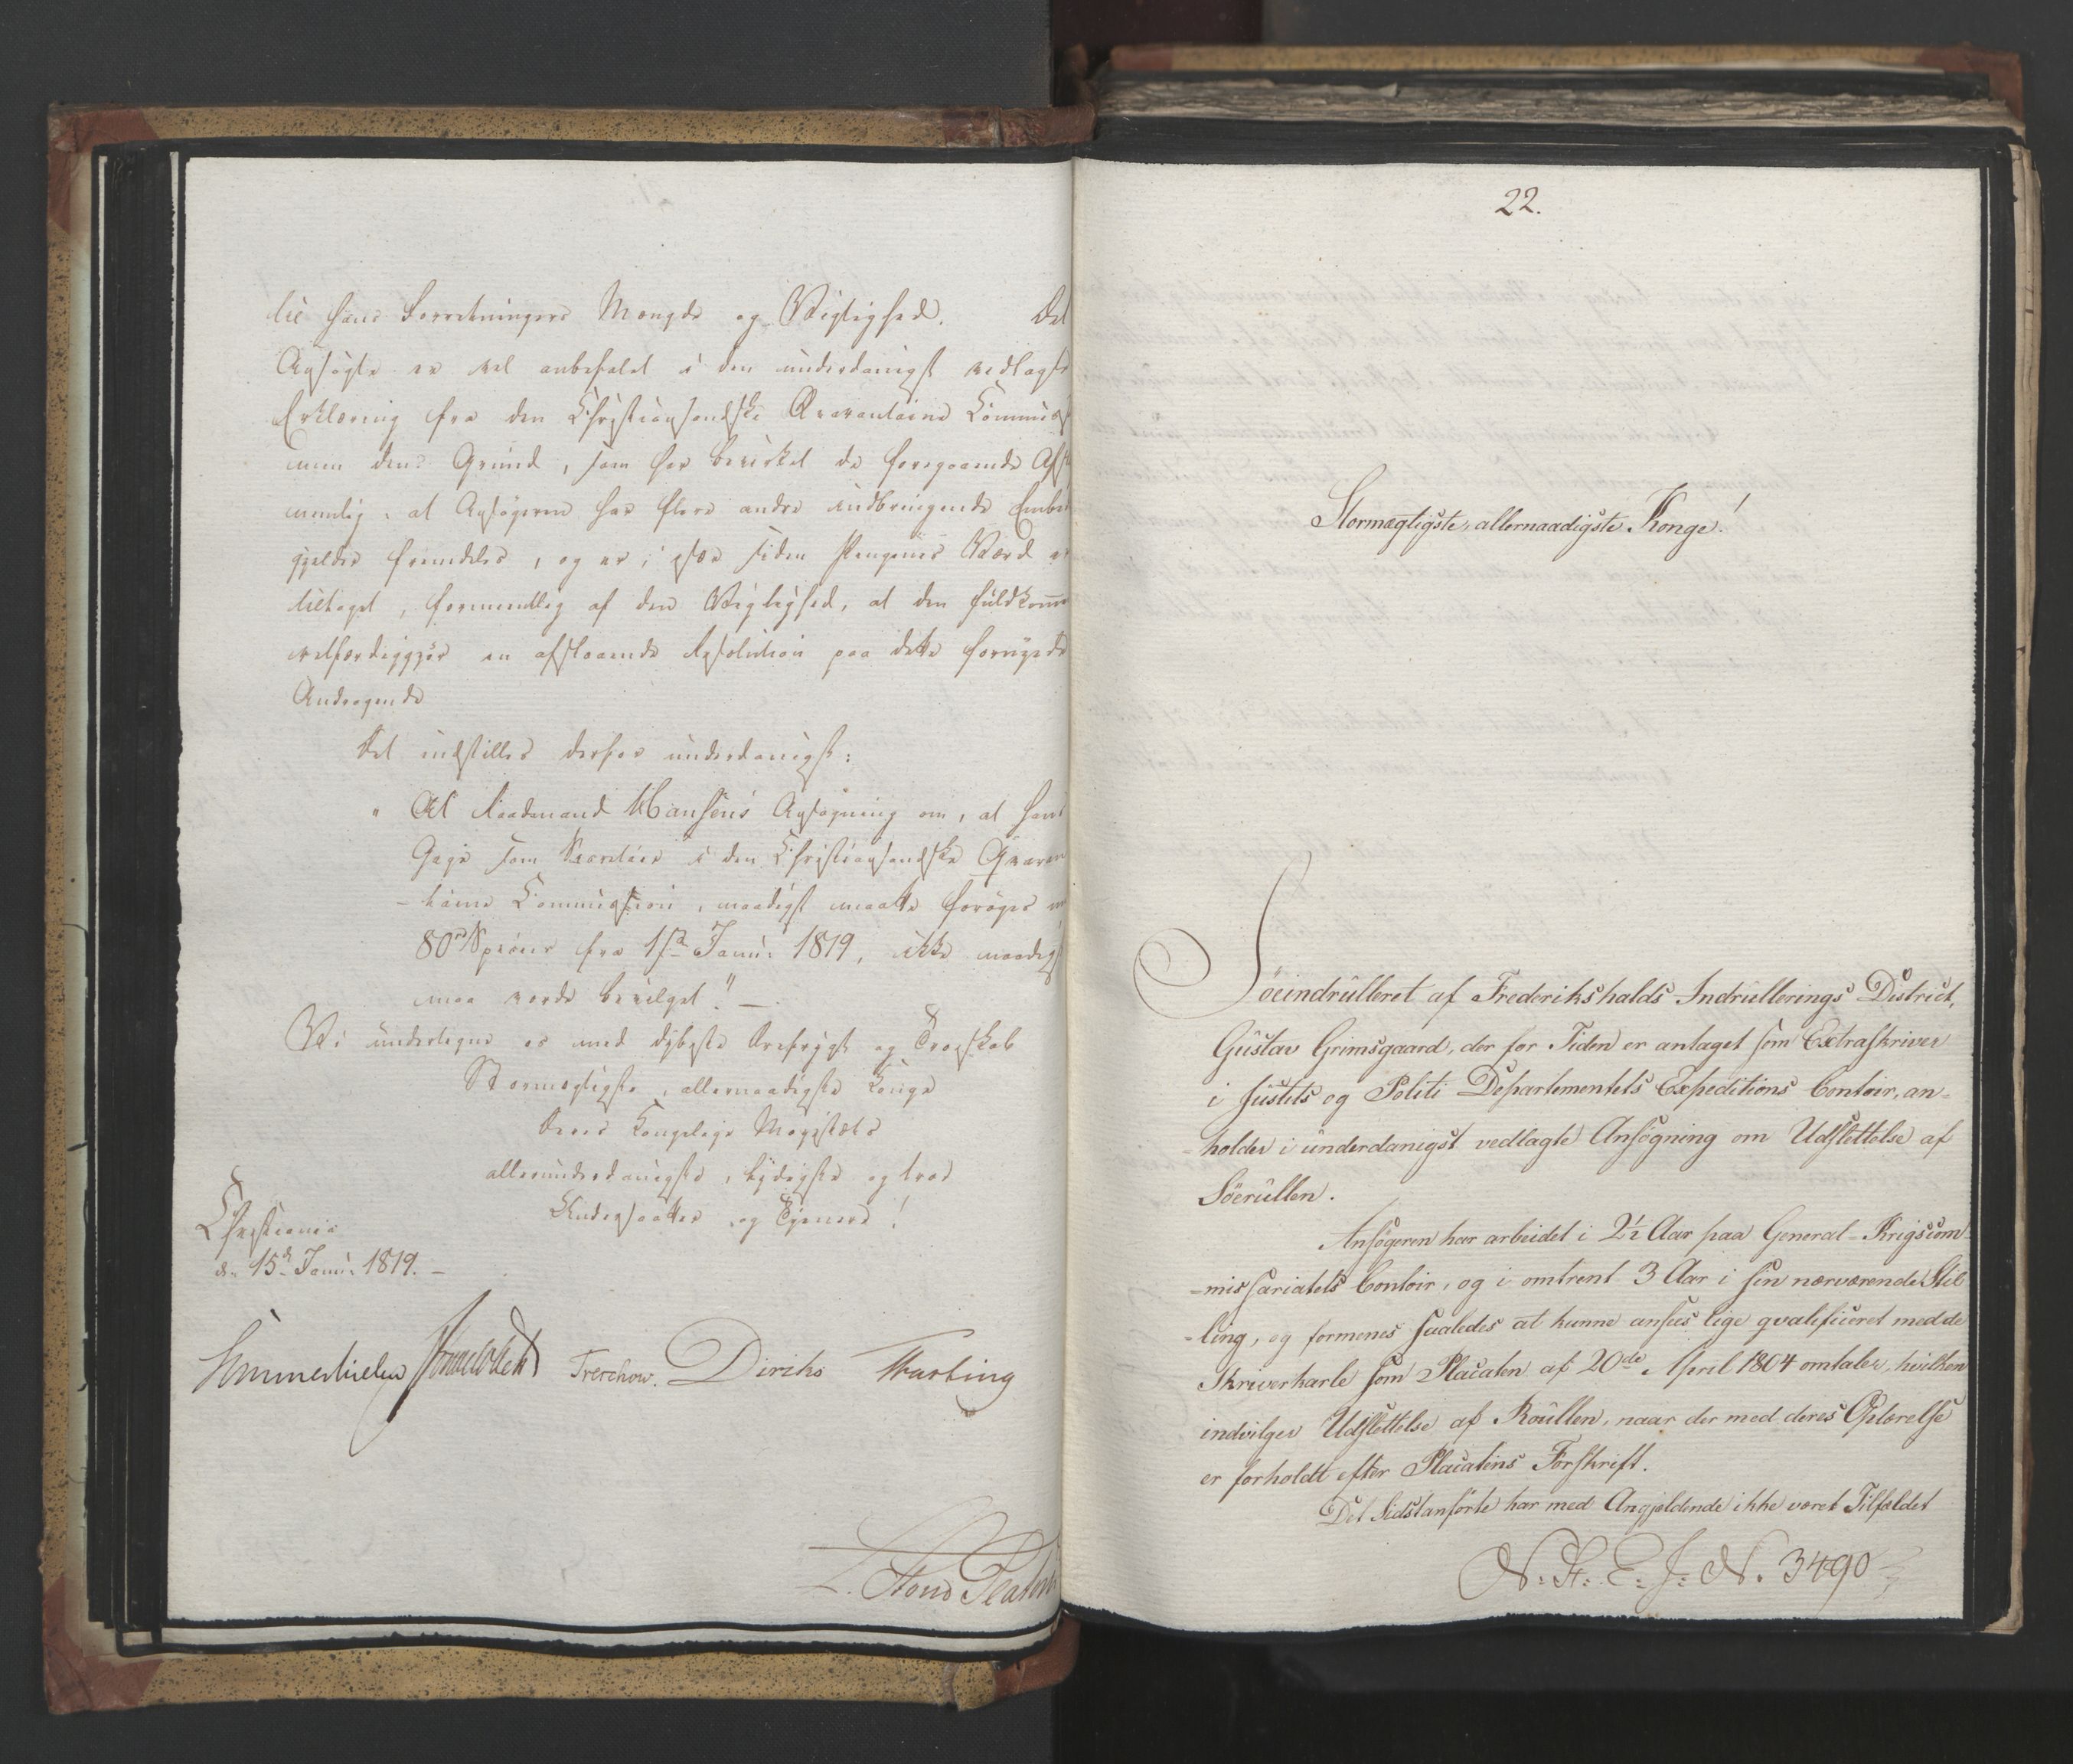 til hans Forretningers Mængde og Vigtighed. Det
Ansøgte er vel anbefalet i den underdanigst vedlagte
Erklæring fra den Christiansandske Qvarantaine Commis
men den Grund, som har bevirket de foregaaende Afsl
nemlig: at Ansøgeren har flere andre indbringende Embe
gjelder fremdeles, og er, især siden Pengenes Værd er
tiltaget, formeentlig af den Vigtighed, at den fuldkomme
retfærdiggjør en afslaaende Resolution paa dette fornyede
Andragende
Det indstilles derfor underdanigst:
"At Raadmand Hansens Ansøgning om, at hans
Gage som Secretair i den Christiansandske Qvaran
-taine Commission, naadigst maatte forøges med
80 Specier fra 1ste Janu: 1819, ikke naadigst
maa vorde bevilget." —
Vi undertegne os med dybeste Ærefrygt og Troeskab
Stormægtigste, allernaadigste Konge
Deres Kongelige Majestæts
allerunderdanigste, lydigste og troe
Undersaatter og Tjenere!
Christiania
d: 15de Janu: 1819. —
Sommerhielm Treschow. Diriks Fasting
22.
Stormægtigste, allernaadigste Konge!
Söeindrulleret af Frederikshalds Indrullerings District,
Gustav Grimsgaard, der for Tiden er antaget som Extraskriver
i Justits og Politi Departementets Expeditions Contoir, an=
=holder i underdanigst vedlagte Ansögning om Udslettelse af
Söerullen.
Ansögeren har arbeidet i 2½ Aar paa General-Krigscom
=missariatets Contoir, og i omtrent 3 Aar i sin nærværende Stil
=ling, og formenes saaledes at kunne ansees lige qvalificeret med de
Skriverkarle som Placaten af 20de April 1804 omtaler, hvilken
indvilger Udslettelse af Roullen, naar der med deres Oplærelse
er forholdt efter Placatens Forskrift.
Det Sidstanförte har med Angjældende ikke været Tilfældet
N. St: E: J: N. 3490